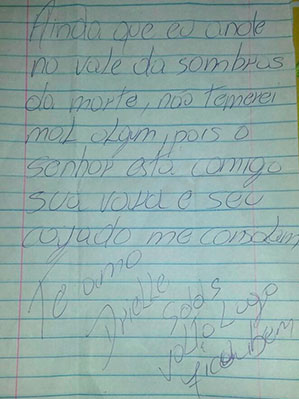 Ainda que eu ande
no vale da sombras
da morte, não temerei
mal algum, pois o
senhor está comigo
sua vara e seu
cajado me consolam
Te amo
Drielle
volto Logo
fica bem